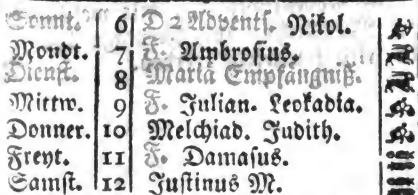 Sonnt. 6 D 2 Advents. Nikol.
Mondt. 7 F. Ambrosius.
Dienst. 8 Mariä Empfängniß.
Mittw. 9 F. Julian. Leokadia.
Donner. 10 Melchiad. Judith.
Freyt. 11 F. Damasus.
Samst. 12 Justinus M.